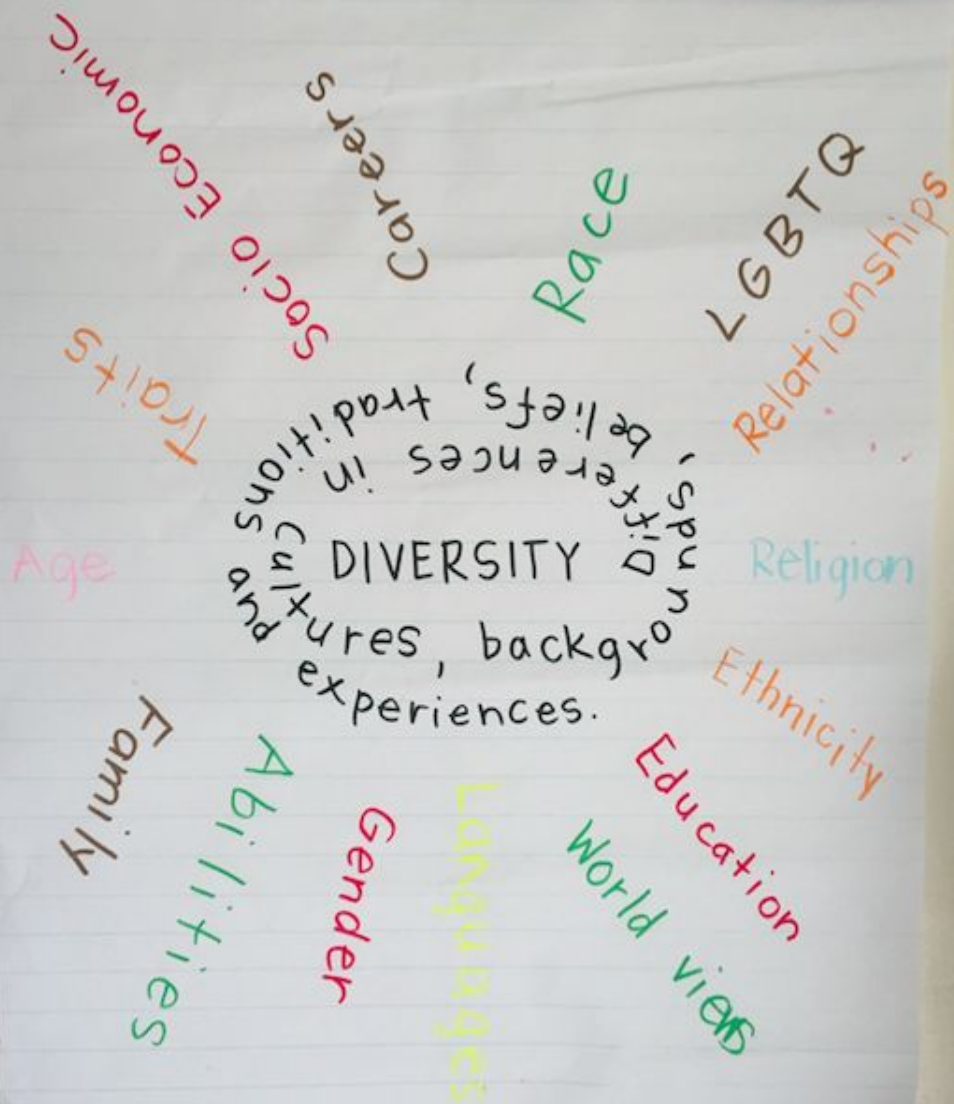 DIVERSITY
Differences in cultures, backgrounds, beliefs, traditions and experiences.
Socio Economic
Careers
Race
LGBTQ
Relationships
Religion
Ethnicity
Education
World views
Languages
Gender
Abilities
Family
Age
Traits